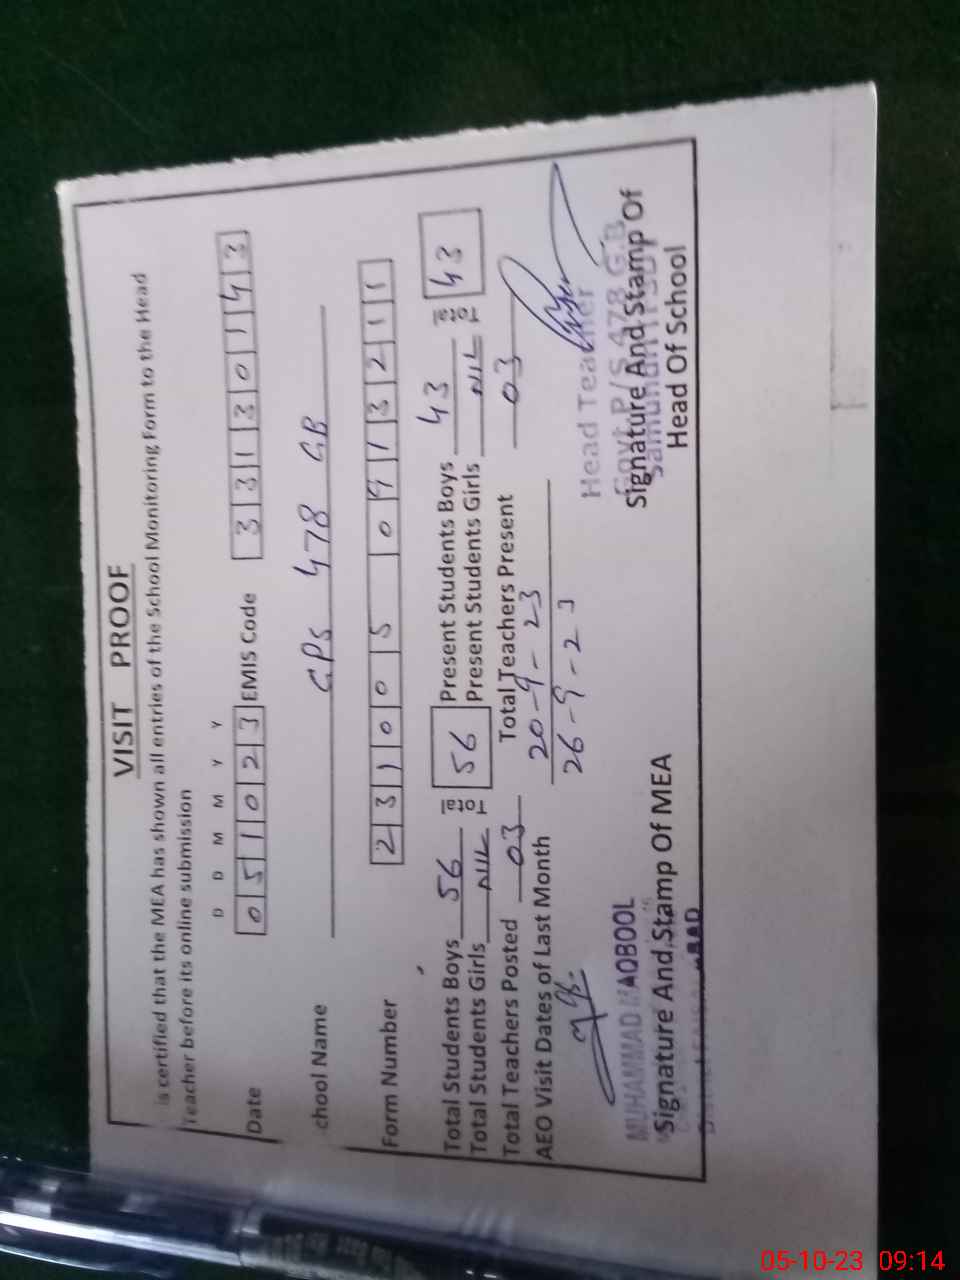 VISIT PROOF
is certified that the MEA has shown all entries of the School Monitoring Form to the Head
Teacher before its online submission
D D M M Y Y
Date 051023 EMIS Code 33130143
chool Name GPS 478 GB
Form Number 231005 0913211
Total Students Boys 56 Total 56 Present Students Boys 43 Total 43
Total Students Girls NIL Present Students Girls NIL
Total Teachers Posted 03 Total Teachers Present 03
AEO Visit Dates of Last Month 20-9-23
26-9-23
Head Teacher
MUHAMMAD MAQBOOL Govt P/S 478 G.B
Signature And Stamp Of MEA Signature And Stamp Of
Head Of School
05-10-23 09:14